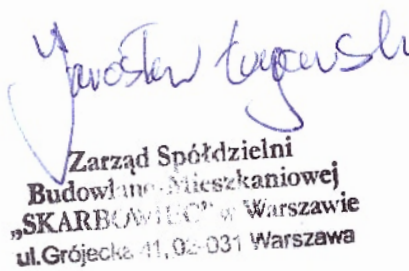 Jarosław
Zarząd Spółdzielni
Budowlano-Mieszkaniowej
„SKARBOWIEC” w Warszawie
ul.Grójecka 41, 02-031 Warszawa